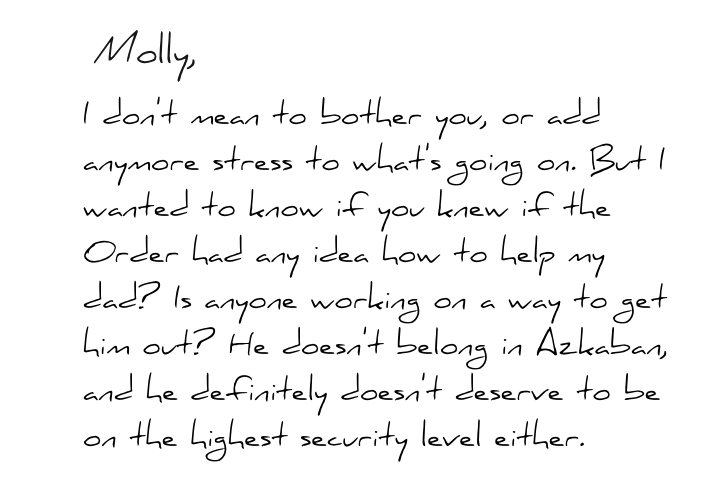 Molly,
I don't mean to bother you, or add
anymore stress to what's going on. But I
wanted to know if you knew if the
Order had any idea how to help my
dad? Is anyone working on a way to get
him out? He doesn't belong in Azkaban,
and he definitely doesn't deserve to be
on the highest security level either.